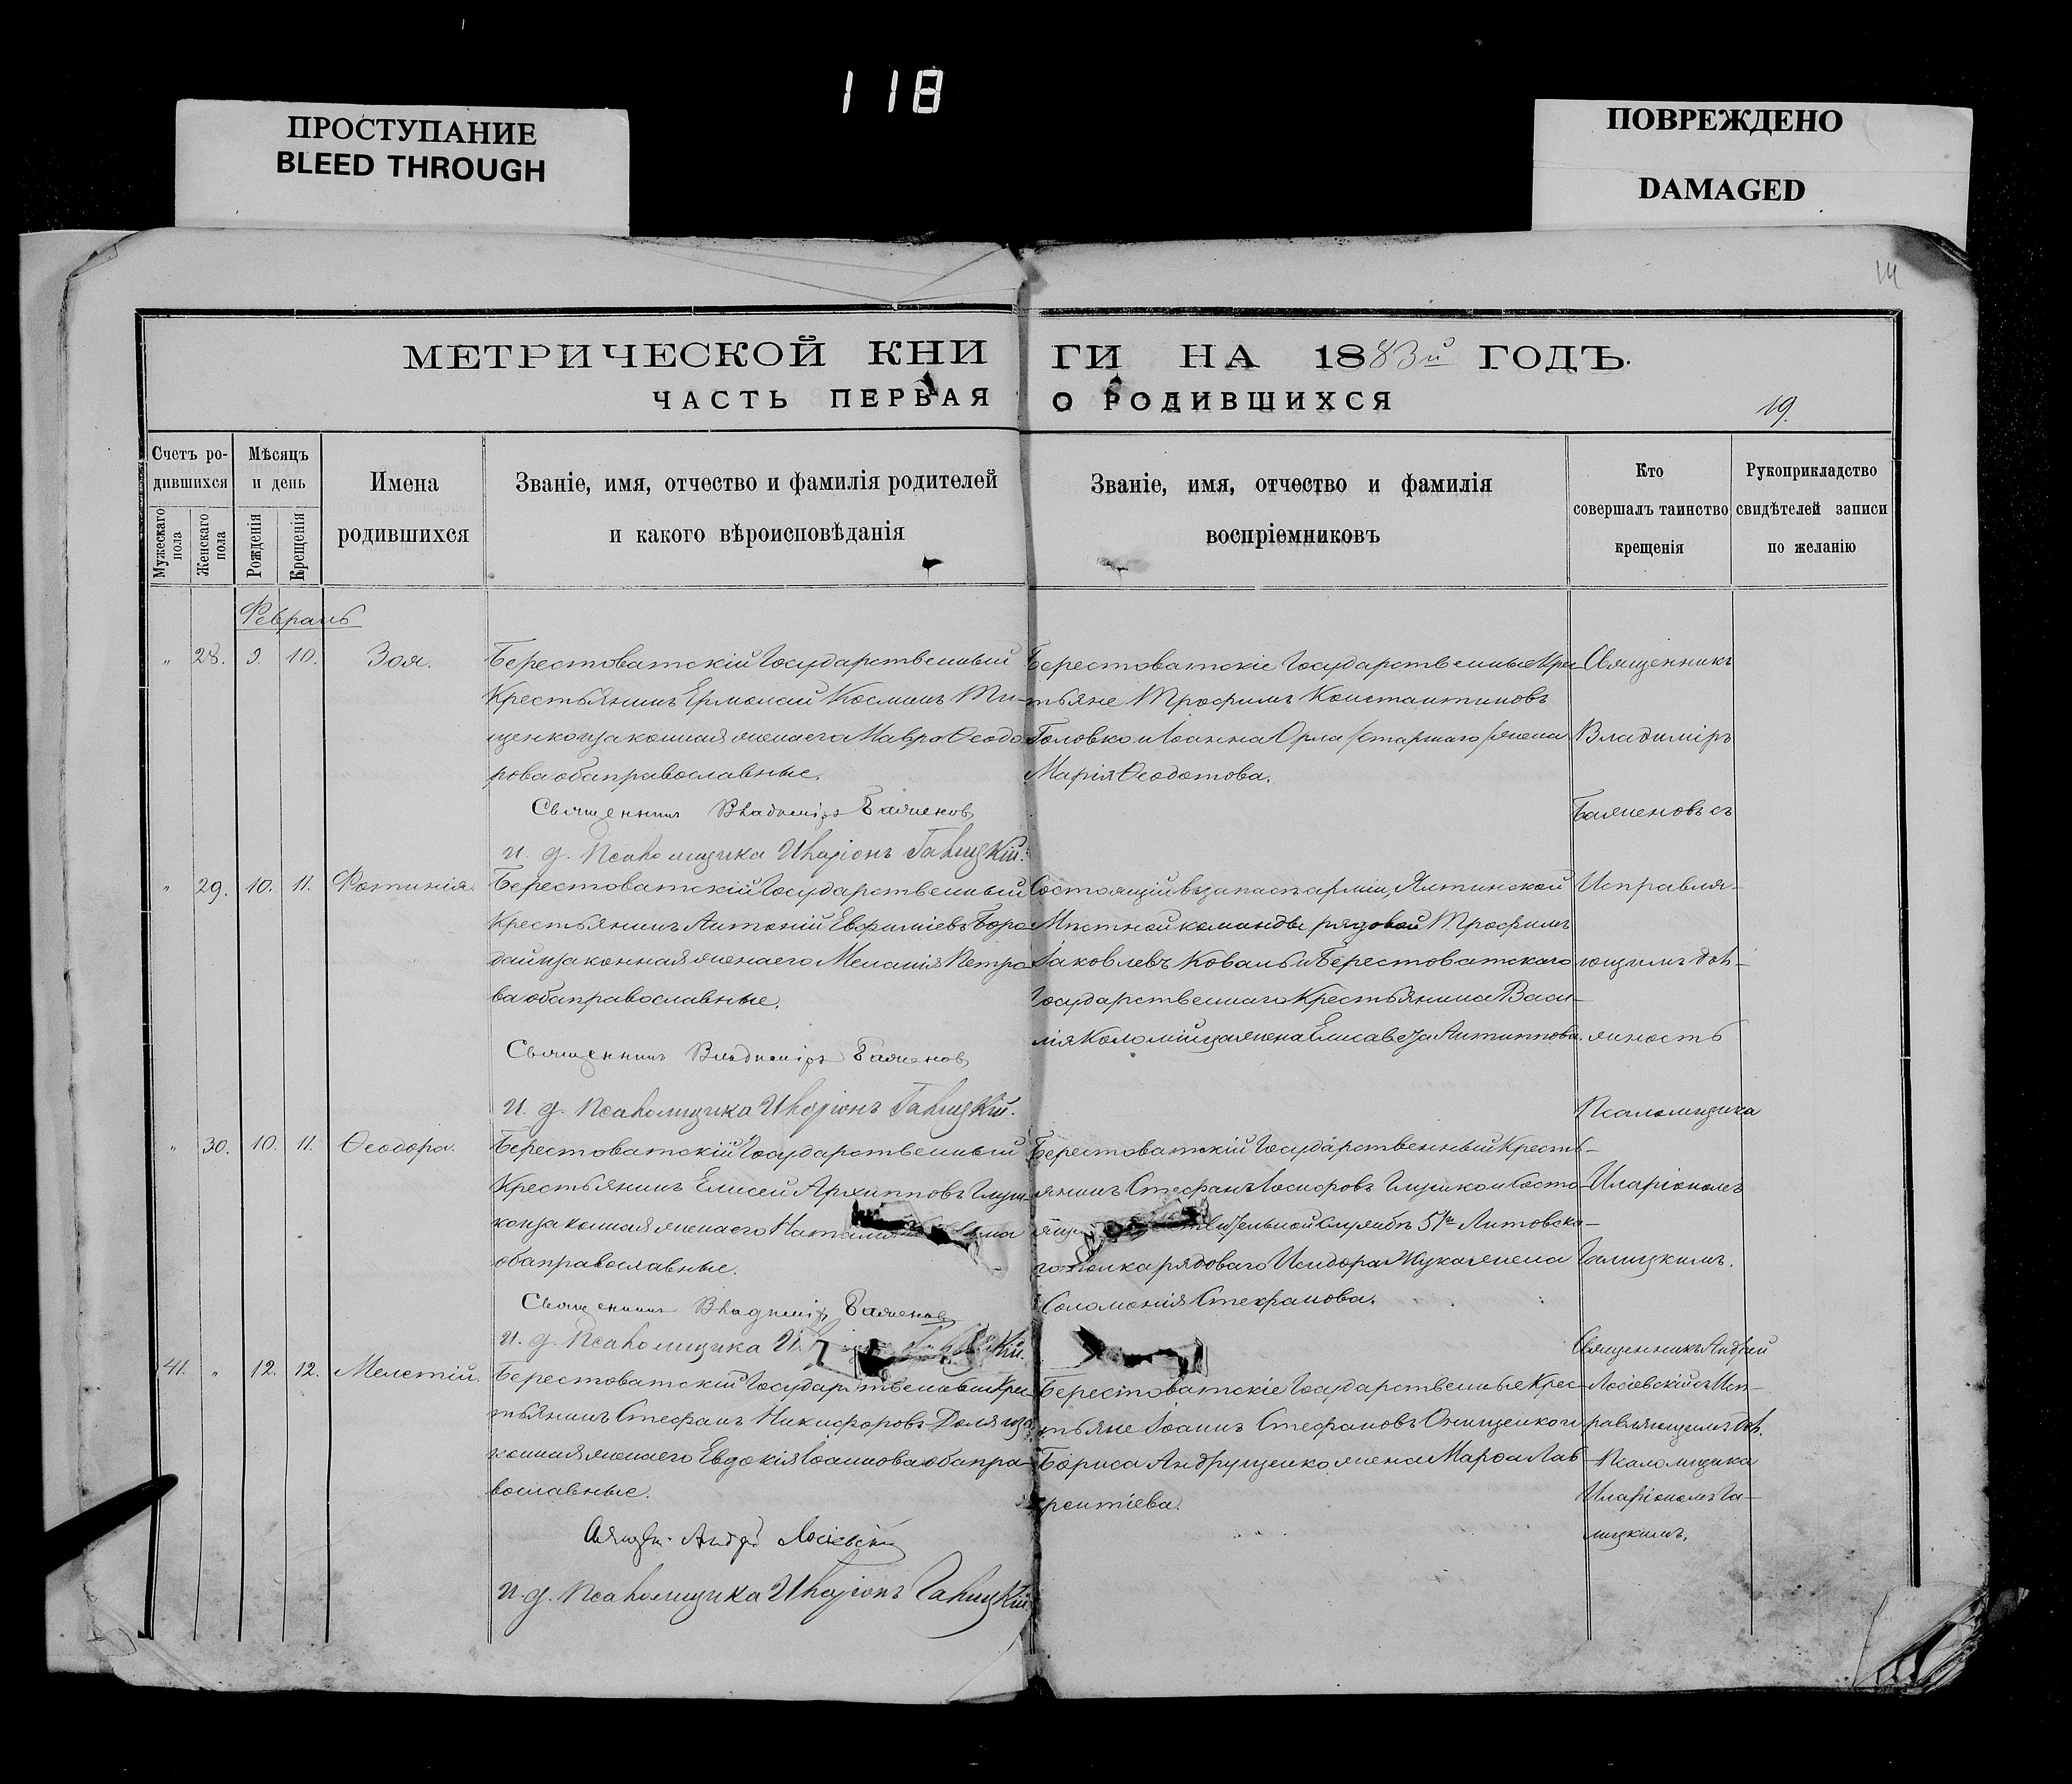 118
ПРОСТУПАНИЕ
BLEED THROUGH
ПОВРЕЖДЕНО
DAMAGED
14
МЕТРИЧЕСКОЙ КНИ ГИ НА 1883й ГОДЪ.
ЧАСТЬ ПЕРВАЯ О РОДИВШИХСЯ
19.
Счетъ ро-
дившихся
Мужескаго пола
Женскаго пола
Мѣсяцъ
и день
Рожденія
Крещенія
Имена
родившихся
Званіе, имя, отчество и фамилія родителей
и какого вѣроисповѣданія
Званіе, имя, отчество и фамилія
воспріемниковъ
Кто
совершалъ таинство
крещенія
Рукоприкладство
свидѣтелей записи
по желанію
Февраль
" 28. 9. 10. Зоя.
Берестоватскій Государственный
Крестьянинъ Ермолай Косминъ Ти-
щенко и законная жена его Мавра Ѳеодо
рова оба православные.
Священникъ Владиміръ Баженов
и. д. Псаломщика Иларіонъ Галицкій.
Берестоватскіе Государственные Крес
тьяне Трофимъ Константиновъ
Головко и Іоанна Орла /старшаго/ жена
Марія Ѳеодотова.
Священникъ
Владиміръ
Баженовъ съ
" 29. 10. 11. Фотинія.
Берестоватскій Государственный
Крестьянинъ Антоній Евфиміевъ Боро
дай и законная жена его Меланія Петро
ва оба православные.
Священникъ Владиміръ Баженов
и. д. Псаломщика Иларіонъ Галицкій.
Состоящій въ запасѣ арміи, Ялтинской
Мѣстной команды рядовой Трофимъ
Іаковлевъ Коваль и Берестоватскаго
Государственнаго Крестьянина Васи-
лія Коломійца жена Елисавета Антипова.
Исправля-
ющимъ дол-
жность
Псаломщика
" 30. 10. 11. Ѳеодора.
Берестоватскій Государственный
Крестьянинъ Елисей Архипповъ Глуш-
ко и законная жена его Наталія
оба православные.
Священникъ Владиміръ Баженов
и. д. Псаломщика
Берестоватскій Государственный Кресть-
янинъ Стефанъ Іосифовъ Глушко и Состо-
тельной службѣ 51го Литовска-
го полка рядоваго Исидора Жука жена
Соломонія Стефанова.
Иларіономъ
Галицкимъ.
41. " 12. 12. Мелетій.
Берестоватскій Государственный Крес-
тьянинъ Стефанъ Никифоровъ Доля и за
конная жена его Евдокія Іоаннова оба пра-
вославные.
Священ. Андрей Лосіевскій
и. д. Псаломщика Иларіонъ Галицкій
Берестоватскіе Государственные Крес-
тьяне Іоаннъ Стефановъ Онищенко и
Бориса Андрущенко жена Марѳа Лав-
рентіева.
Священникъ Андрей
Лосіевскій съ Исп-
равляющимъ дол.
Псаломщика
Иларіономъ Га-
лицкимъ.